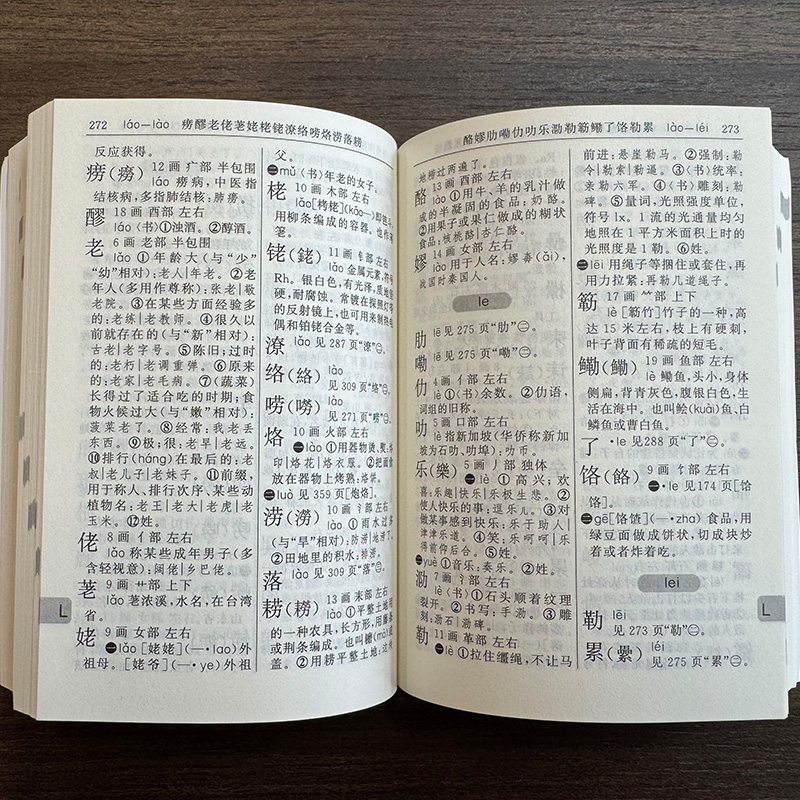 272 láo—lào 痨醪老佬荖姥栳铑潦络唠烙涝落耢
反应获得。
痨(癆) 12画 疒部 半包围
láo 痨病,中医指
结核病,多指肺结核:肺痨。
醪 18画 酉部 左右
láo〈书〉①浊酒。②醇酒。
老 6画 老部 半包围
lǎo ①年龄大(与“少”
“幼”相对):老人|年老。②老
年人(多用作尊称):张老|敬
老院。③在某些方面经验多
的:老练|老教师。④很久以
前就存在的(与“新”相对):
古老|老字号。⑤陈旧:过时
的:老朽|老调重弹。⑥原来
的:老家|老毛病。⑦(蔬菜)
长得过了适合吃的时期;食
物火候过大(与“嫩”相对):
菠菜老了。⑧经常:我老丢
东西。⑨极;很:老早|老远。
⑩排行(háng)在最后的:老
叔|老儿子|老妹子。⑪前缀,
用于称人、排行次序、某些动
植物名:老王|老大|老虎|老
玉米。⑫姓。
佬 8画 亻部 左右
lǎo 称某些成年男子(多
含轻视意):阔佬|乡巴佬。
荖 9画 艹部 上下
lǎo 荖浓溪,水名,在台湾
省。
姥 9画 女部 左右
㊀lǎo [姥姥](—·lao)外
祖母。[姥爷](—·ye)外祖
L
父。
㊁mǔ〈书〉年老的女子。
栳 10画 木部 左右
lǎo[栲栳](kǎo—)即笆斗,
用柳条编成的容器。也作
笔。
铑(銠) 11画 钅部 左右
lǎo 金属元素,符号
Rh。银白色,有光泽,质地坚
硬,耐腐蚀。常镀在探照灯等
的反射镜上,也可用来制热电
偶和铂铑合金等。
潦 lǎo
见 287 页“潦”㊀。
络(絡) lào
见 309 页“络”㊀。
唠(嘮) lào
见 271 页“唠”㊀。
烙 10画 火部 左右
㊀lào ①用器物烫、熨:烙
印|烙花|烙衣服。②把面食
放在器物上烤熟:烙饼。
㊁luò 见 359 页[炮烙]。
涝(澇) 10画 氵部 左右
lào ①雨水过多
(与“旱”相对):防涝|地涝了。
②田地里的积水:排涝。
落 lào
见 309 页“落”㊀。
耢(耮) 13画 耒部 左右
lào ①平整土地用
的一种农具,长方形,用藤条
或荆条编成。也叫耱(mò)或
盖。②用耢平整土地:这块
酪嫪肋嘞仂叻乐泐勒簕鳓了饹勒累 lào—léi 273
地耢过两遍了。
酪 13画 酉部 左右
lào ①用牛、羊的乳汁做
成的半凝固的食品:奶酪。
②用果子或果仁做成的糊状
食品:核桃酪|杏仁酪。
嫪 14画 女部 左右
lào 用于人名:嫪毐(ǎi),
战国时秦国人。
le
肋 lē 见 275 页“肋”㊀。
嘞 lē 见 275 页“嘞”㊀。
仂 4画 亻部 左右
lè ①〈书〉余数。②仂语,
词组的旧称。
叻 5画 口部 左右
lè 指新加坡(华侨称新加
坡为石叻、叻埠):叻币。
乐(樂) 5画 丿部 独体
㊀lè ①高兴;欢
喜:乐趣|快乐|乐极生悲。②
使人快乐的事:逗乐儿。③对
做某事感到快乐:乐于助人|
津津乐道。④笑:乐呵呵|乐
得前仰后合。⑤姓。
㊁yuè ①音乐:奏乐。②姓。
泐 7画 氵部 左右
lè〈书〉①石头顺着纹理
裂开。②书写:手泐。③雕
刻:泐石|泐碑。
勒 11画 革部 左右
㊀lè ①拉住缰绳,不让马
前进:悬崖勒马。②强制:勒
令|勒索|勒逼。③〈书〉统率:
亲勒六军。④〈书〉雕刻:勒
碑。⑤量词,光照强度单位,
符号 lx。1 流的光通量均匀
地照在 1 平方米面积上时的
光照度是 1 勒。⑥姓。
㊁lēi 用绳子等捆住或套住,再
用力拉紧:再勒几道绳子。
簕 17画 ⺮部 上下
lè [簕竹]竹子的一种,高
达 15 米左右,枝上有硬刺,
叶子背面有稀疏的短毛。
鳓(鰳) 19画 鱼部 左右
lè 鳓鱼,头小,身体
侧扁,背青灰色,腹银白色,生
活在海中。也叫鲙(kuài)鱼、白
鳞鱼或曹白鱼。
了 ·le见288页“了”㊀。
饹(餎) 9画 饣部 左右
㊀·le见174页[饸
饹]。
㊁gē[饹馇](—·zha)食品,用
绿豆面做成饼状,切成块炒
着或者炸着吃。
lei
勒 lēi
见 273 页“勒”㊁。
累(纍) léi
见 275 页“累”㊁。
L